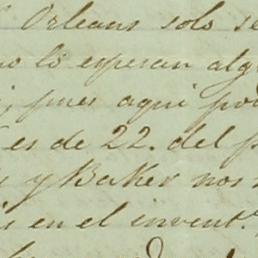 Orleans solo se
no lo esperan alg
pues aqui pod
es de 22. del p
y Baker nos
en el invent.º